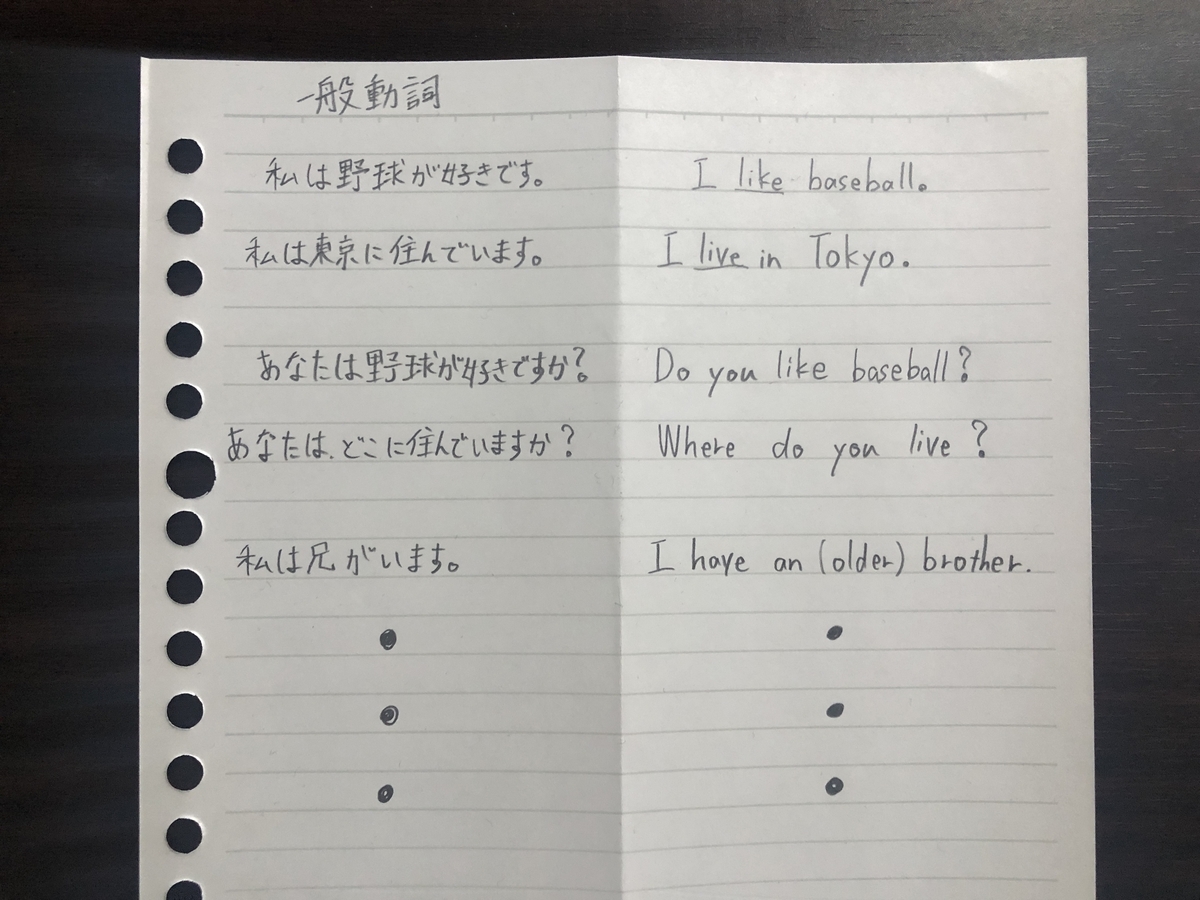 一般動詞
私は野球が好きです。 I like baseball.
私は東京に住んでいます。 I live in Tokyo.
あなたは野球が好きですか? Do you like baseball?
あなたは、どこに住んでいますか? Where do you live?
私は兄がいます。 I have an (older) brother.